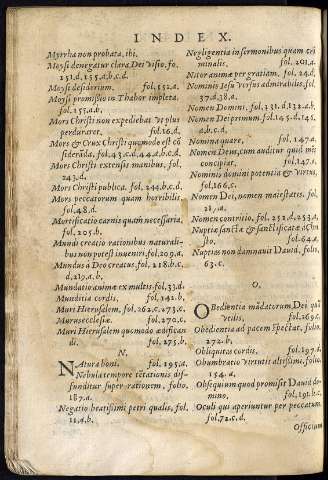 INDEX.
Myrrha non probata, ibi.
Moysi denegatur clara Dei visio, fo.
251.d, 255.a,b,c,d.
Moysi desiderium. fol.252.a.
Moysi promissio in Thabor impleta.
fol.255.a,b.
Mors Christi non expediebat vt plus
perduraret. fol.16.d.
Mors & Crux Christi quomodo est cõ
siderãda, fol.43.c,d,44.a,b,c,d.
Mors Christi extensis manibus, fol.
243.d.
Mors Christi publica. fol.244.b,c,d.
Mors peccatorum quam horribilis.
fol.48.d.
Mortificatio carnis quàm necessaria,
fol.205.b.
Mundi creatio rationibus naturali-
bus non potest inueniri. fol.209.a.
Mundus à Deo creatus, fol.218.b,c,
d,219.a,b.
Mundatio animæ ex multis. fol.33.d.
Munditia cordis, fol.142.b.
Muri Hierusalem, fol.262.c,273.c.
Murus ecclesiæ. fol.270.c.
Muri Hierusalem quomodo ædifican
di. fol.275.b.
N.
NAtura boni. fol.195.a.
Nebula tempore tẽtationis dif-
funditur super rationem, folio.
187.a.
Negatio beatissimi petri qualis, fol.
12.a,b.
Negligentia in sermonibus quam cri
minalis. fol.201.a.
Nitor animæ per gratiam. fol.24.d.
Nominis Iesu vsus admirabilis. fol.
37.d,38.a.
Nomen Domini. fol.131.d,132.a,b.
Nomen Dei primum, fol.145.d,146.
a,b,c,d.
Nomina quare, fol.147.a.
Nomen Deus, cum auditur quid mẽs
concipiat, fol.147.
Nominis domini potentia & virtus,
fol.166.c.
Nomen Dei, nomen maiestatis. fol.
Nomen contritio, fol.252.d,253.a,
Nuptiæ sanctæ & sanctificatæ à Chri
sto. fol.64.a.
Nuptias non damnauit Dauid, folio.
63.c.
O.
OBedientia mãdatorum Dei quã
vtilis. fol.269.c.
Obedientia ad pacem spectat. folio.
272.b.
Obliquitas cordis. fol.197.d.
Obumbratio virtutis altissimi, folio.
154.a.
Obsequium quod promisit Dauid do-
mino, fol.191.b,c.
Oculi qui aperiuntur per peccatum,
fol.72.c,d.
Officium